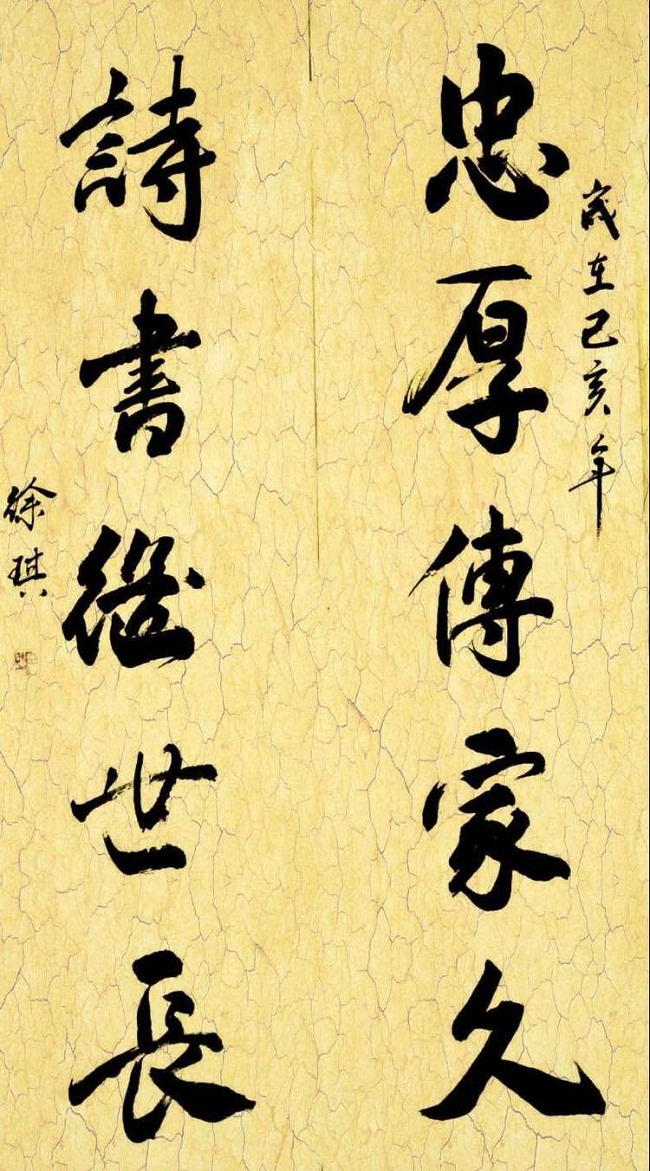 歲在己亥年
忠厚傳家久
詩書繼世長
徐琪